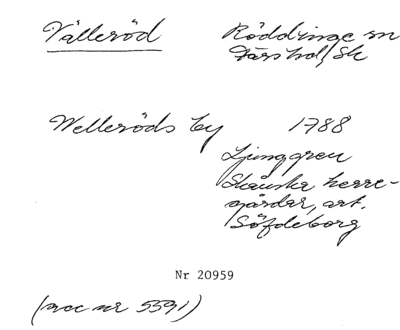 Välleröd
Röddinge sn
Färs hd, Sk
Welleröds by 1788
Ljunggren
Skånska herre-
gårdar, art.
Söfdeborg
Nr 20959
(acc nr 5591)